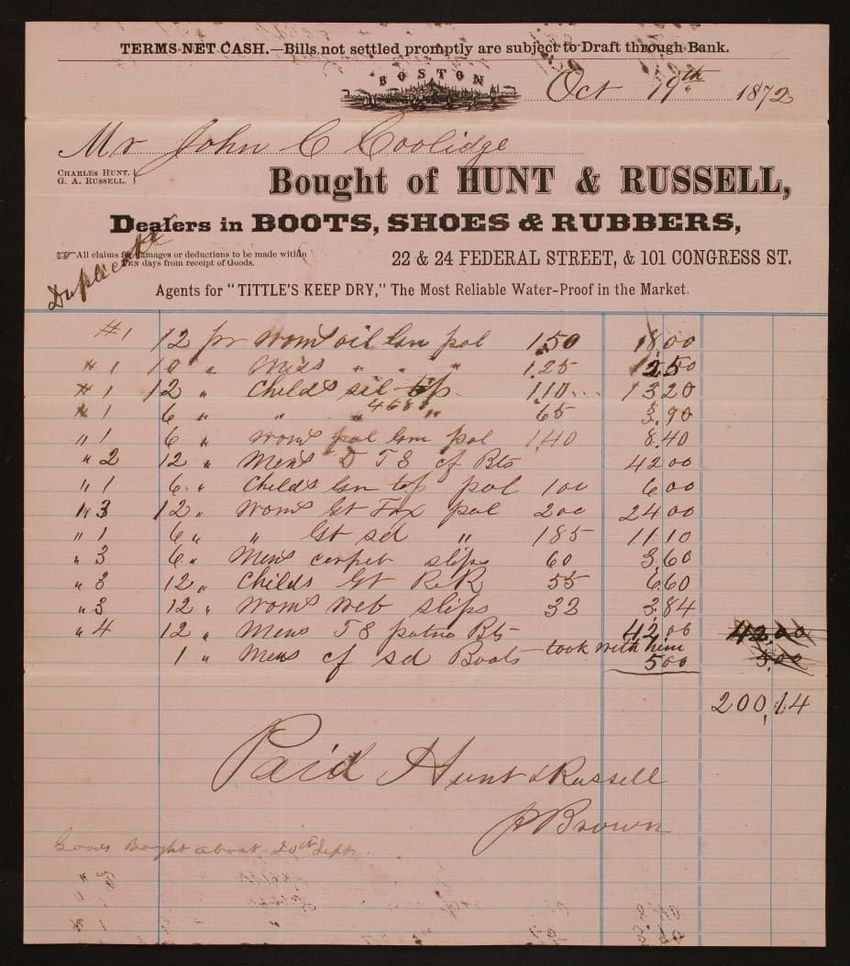 TERMS NET CASH.—Bills not settled promptly are subject to Draft through Bank.
BOSTON
Oct 19th 1872
Mr John C Coolidge
CHARLES HUNT.
G. A. RUSSELL.
Bought of HUNT & RUSSELL,
Dealers in BOOTS, SHOES & RUBBERS,
Duplicate
☞ All claims for damages or deductions to be made within
TEN days from receipt of Goods.
22 & 24 FEDERAL STREET, & 101 CONGRESS ST.
Agents for "TITTLE'S KEEP DRY," The Most Reliable Water-Proof in the Market.
#1 12 pr Wom oil Gn pol 1.50 18.00
#1 10 " Miss " " " 1.25 12.50
#1 12 " Childs sil tip 110 13 20
#1 6 " " 65 3.90
"1 6 " Wom pol Gn pol 140 8.40
"2 12 " Mens D T S cf Bts 42 00
"1 6 " Childs Gn tip pol 100 6 00
"3 12 " Wom Gt Fox pol 200 24 00
"1 6 " " Gt sd " 185 11 10
"3 6 " Mens carpet slips 60 3,60
"3 12 " Childs Gt R R 55 6,60
"3 12 " Wom web slips 32 3.84
"4 12 " Mens T S Bts 42,00 42.00
1 " Mens cf sd Boots took with him 5 00 5.00
200,14
Paid Hunt & Russell
Brown
Goods Bought about 20th Sept